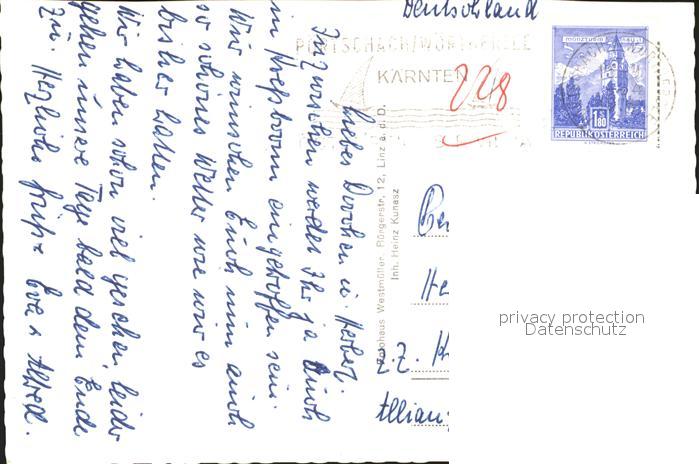 Deutschland
PÖRTSCHACH/WÖRTHERSEE
KÄRNTEN
228
MÜNZTURM HALL I. T.
1.80
REPUBLIK ÖSTERREICH
Liebes Dorchen u. Herbert.
Inzwischen werdet Ihr ja auch
in eingetroffen sein.
Wir wünschen Euch nun auch
so schönes Wetter wie wir es
bisher hatten.
Wir haben schon viel gesehen, leider
gehen unsere Tage bald dem Ende
zu. Herzliche Grüße Eva u. Alfred.
Fotohaus Westmüller, Bürgerstr. 12, Linz a. d. D.
Inh. Heinz Kunasz
He
z. Z.
Allian
privacy protection
Datenschutz